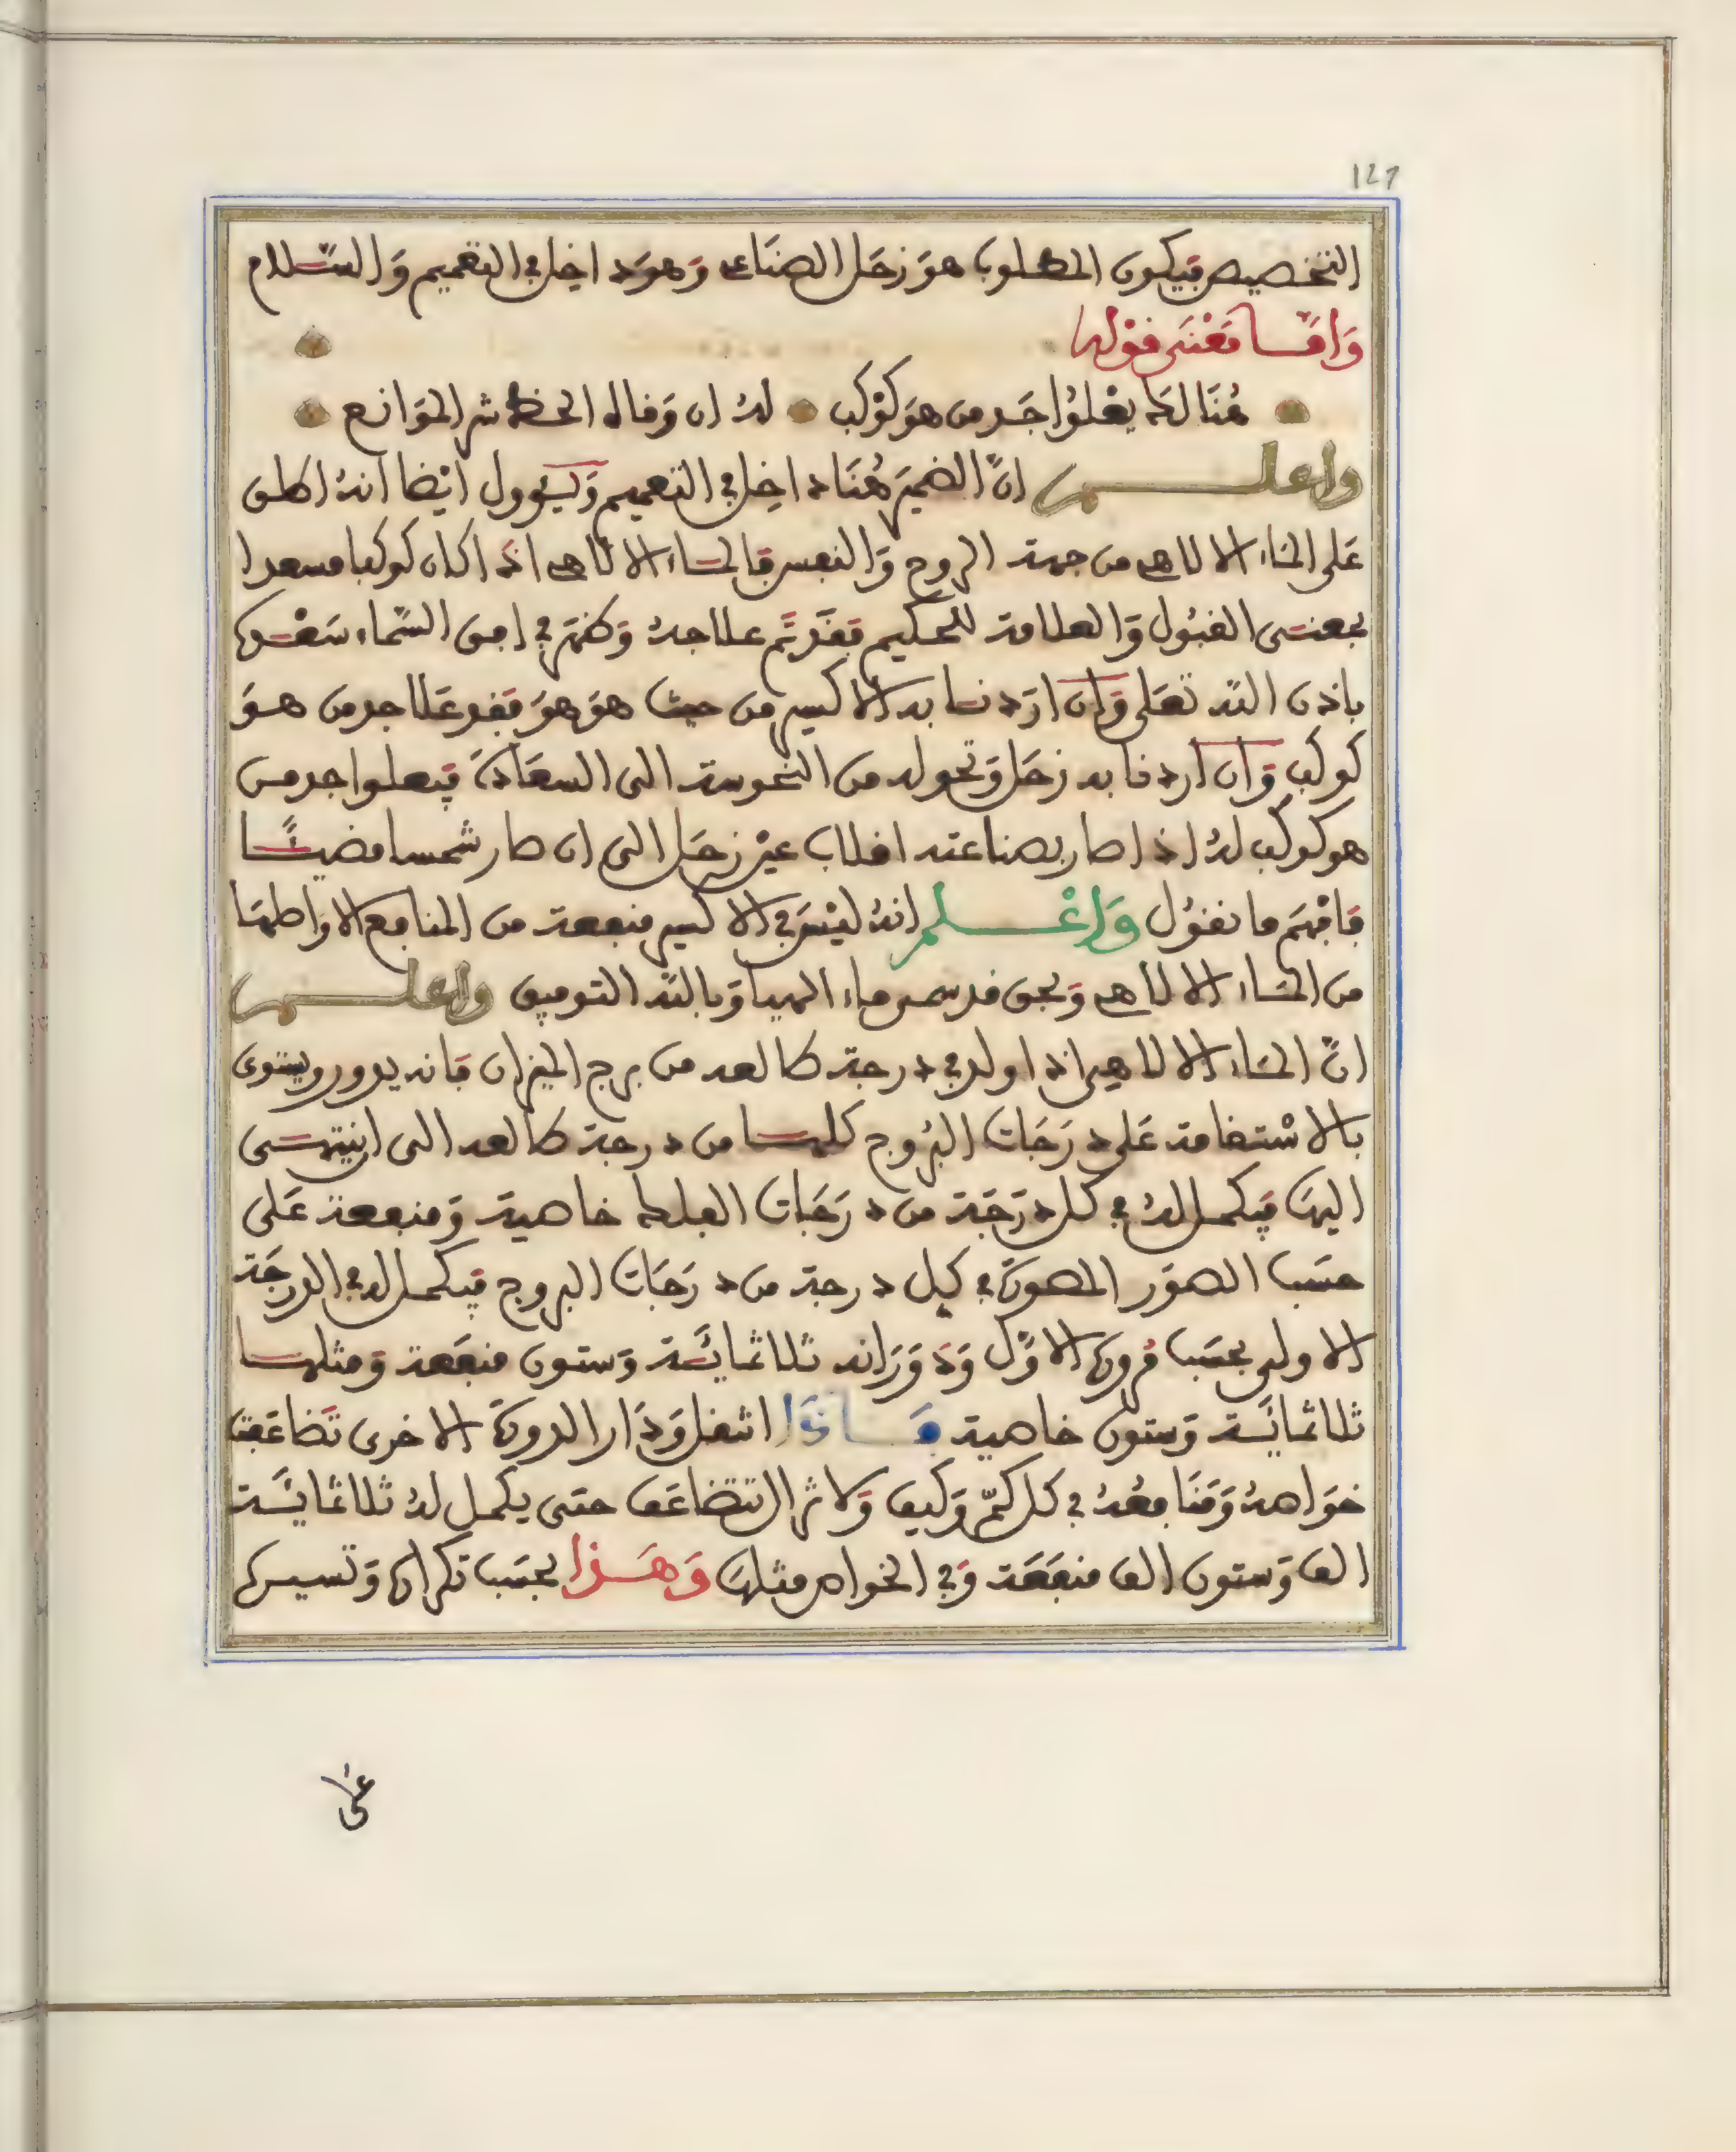 127
التخصيص فيكون المطلوب هو زحل الصناعى وهو داخل فى التعميم والسلام
وامّا معنى قوله
هنالك يعلوا جد من هو كوكب له ان وقاه الحظ شر الموانع
واعلم ان الضمير هنا داخل فى التعميم ويؤول ايضا انه اطلق
على الماء الالاهى من جهة الروح والنفس فالماء الالاهى اذا كان كوكبا مسعدا
بمعنى القبول والعلامة للحكيم فقد تم علا جده وظهر فى افق السماء سعده
باذن الله تعلى وان اردنا به الاكسير من حيث هو هو فقد علا جد من هو
كوكب وان اردنا به زحل وتحوله من النحوسة الى السعادة فيعلوا جد من
هو كوكب له اذا صار بصناعته انقلاب عين زحل الى ان صار شمسا مضيئا
فافهم ما نقول واعلم انه ليس فى الاكسير منفعة من المنافع الا واصلها
من الماء الالاهى وبحق قد سمى ماء الحيا وبالله التوفيق واعلم
ان الماء الالاهى اذا ولد فى درجة طالعه من برج الميزان فانه يدور ويستوى
بالاستقامة على درجات البروج كلها من درجة طالعه الى ان ينتهى
اليها فيكمل له فى كل درجة من درجات الفلك خاصية ومنفعة على
حسب الصور المصورة فى كل درجة من درجات البروج فيكمل له فى الدرجة
الاولى بحسب دوره الاول ودورانه ثلاثمائة وستون منفعة ومثلها
ثلاثمائة وستون خاصية فاذا انتقل ودار الدورة الاخرى تضاعفت
خواصه ومنافعه فى كل كم وكيف ولا تزال تتضاعف حتى يكمل له ثلاثمائة
الف وستون الف منفعة وفى الخواص مثلها وهذا بحسب تكراره وتسييره
على